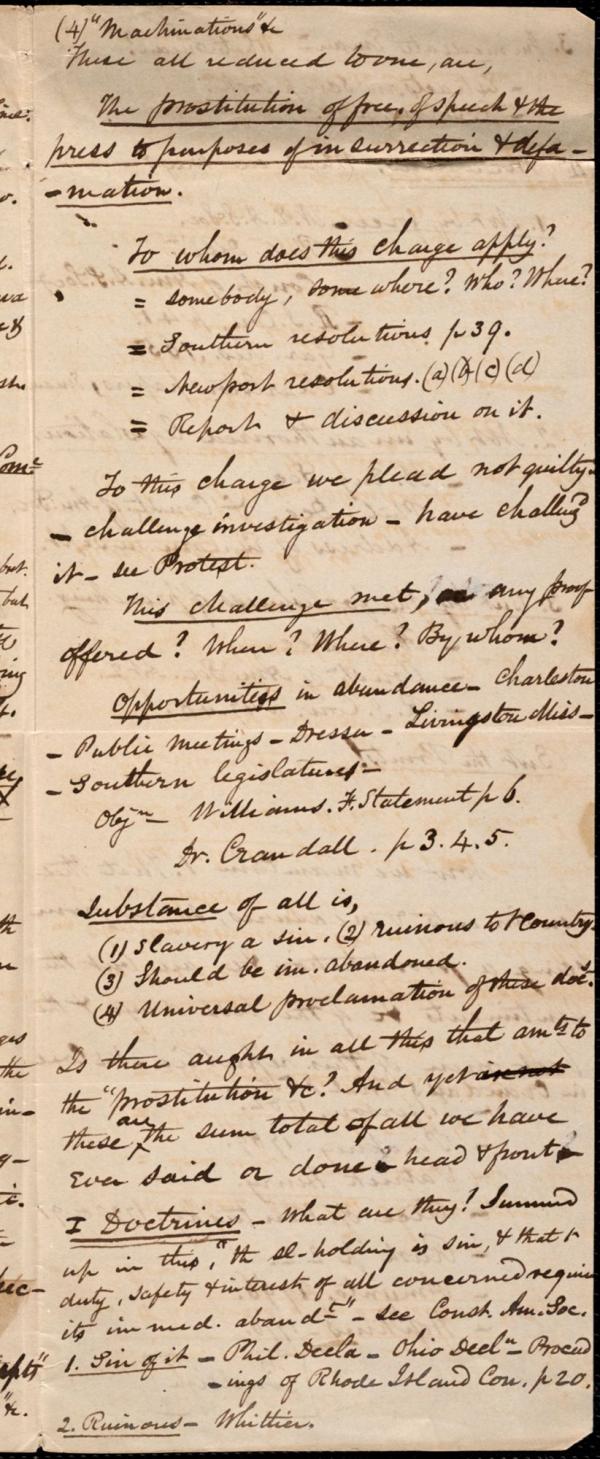 (4) "Machinations" &c
These all reduced to one, are,
The prostitution of free. of speech & the
press to purposes of insurrection & defa-
-mation.
To whom does this charge apply?
= somebody, somewhere? Who? Where?
= Southern resolutions p 39.
= Newport resolutions. (a) (b) (c) (d)
= Report & discussion on it.
To this charge we plead not guilty-
- challenge investigation - have challgd
it - see Protest.
This challenge met, any proof
offered? When? Where? By whom?
Opportunities in abundance - Charleston
- Public Meetings - Dresser - Livingston Miss -
- Southern legislatures -
Objn - Williams. F. Statement p 6.
Dr. Crandall. p 3. 4. 5.
Substance of all is,
(1) Slavery a sin. (2) ruinous to t Country.
(3) Should be im. abandoned.
(4) Universal proclamation of these doc.
Is there aught in all this that amts to
the "prostitution &c? And yet
these are the sum total of all we have
ever said or done - head & front -
I Doctrines - What are they? Summd
up in this, "th sl-holding is sin, & that t
duty, safety & interest of all concerned require
its immed. aband t" - see Const. Am. Soc.
1. Sin of it - Phil. Decla - Ohio Decln - Proceed
-ings of Rhode Island Con. p 20.
2. Ruinous - Whittier.